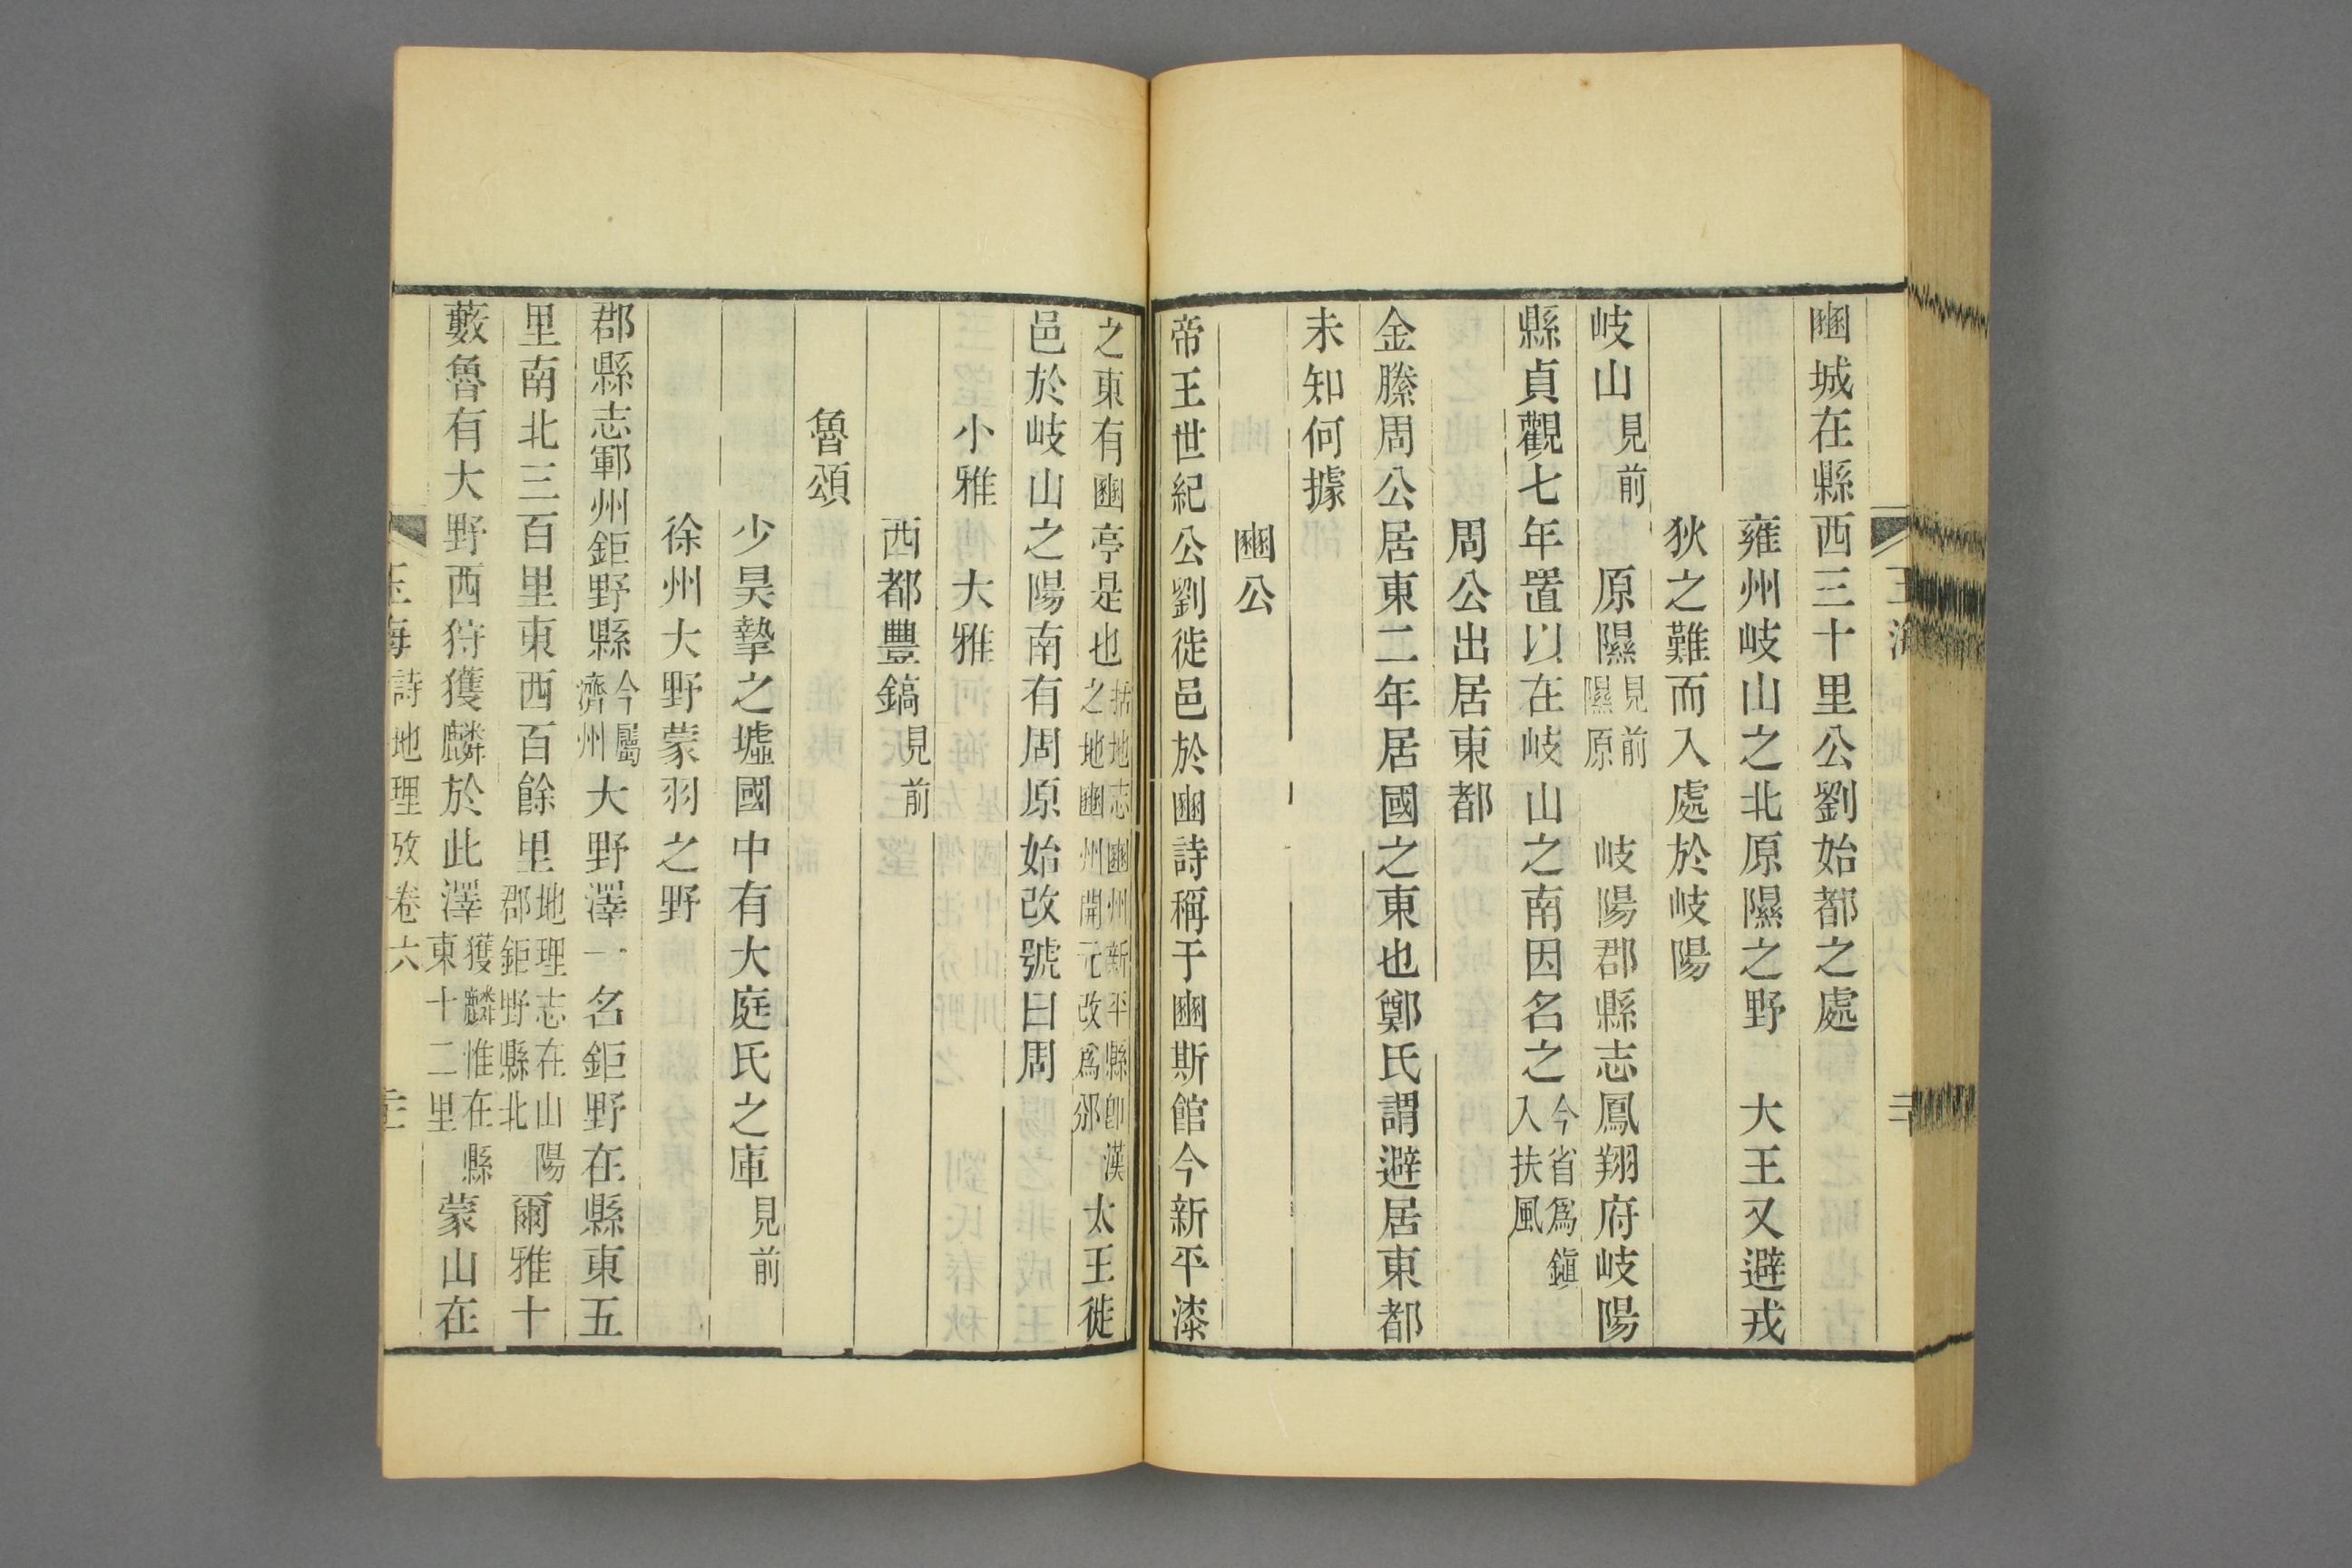 豳城在縣西三十里公劉始都之處
雍州岐山之北原隰之野 大王又避戎
狄之難而入處於岐陽
岐山見前 原隰見前隰原 岐陽郡縣志鳳翔府岐陽
縣貞觀七年置以在岐山之南因名之今省爲鎭入扶風
周公出居東都
金縢周公居東二年居國之東也鄭氏謂避居東都
未知何據
豳公
帝王世紀公劉徙邑於豳詩稱于豳斯館今新平漆
之東有豳亭是也括地志豳州新平縣卽漢之地豳州開元改爲邠太王徙
邑於岐山之陽南有周原始改號曰周
小雅 大雅
西都豐鎬見前
魯頌
少昊摯之墟國中有大庭氏之庫見前
徐州大野蒙羽之野
郡縣志鄆州鉅野縣今屬濟州大野澤一名鉅野在縣東五
里南北三百里東西百餘里地理志在山陽郡鉅野縣北爾雅十
藪魯有大野西狩獲麟於此澤獲麟惟在縣東十二里蒙山在
玉海 詩地理攷卷六